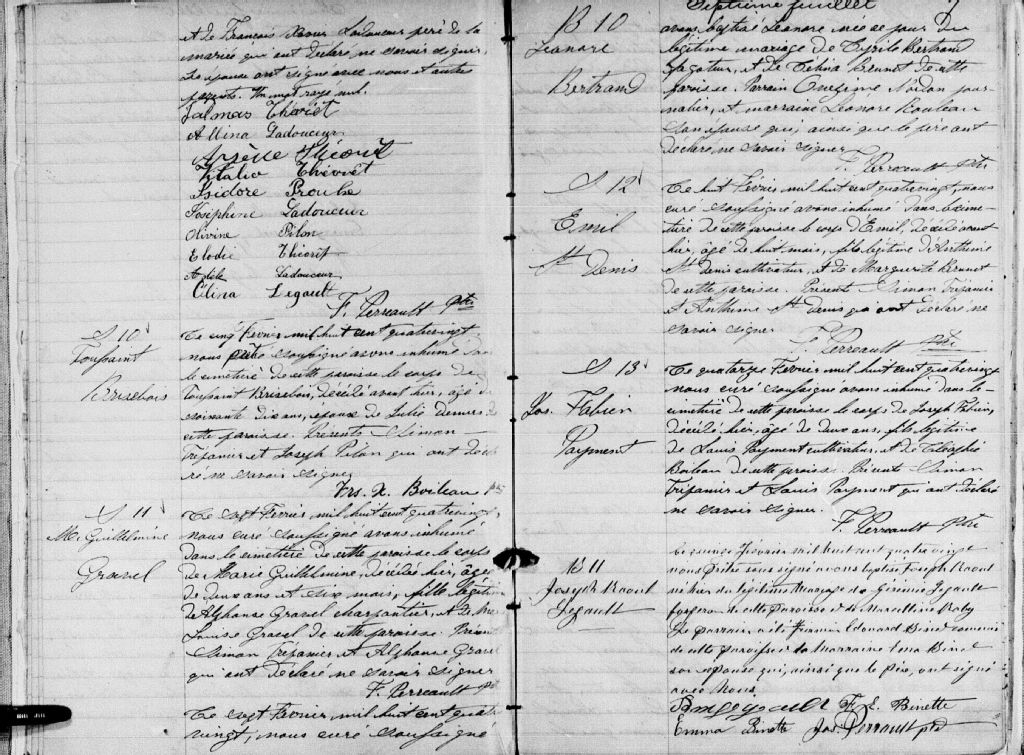 et de François Xavier Ladouceur père de la
mariée qui ont déclaré ne savoir signer,
Les époux ont signé avec nous et autres
parents. Un mot rayé nul.
Dalmas Théorêt
Albina Ladouceur
Arsène Théorêt
Vitalio Théorêt
Isidore Proulx
Joséphine Ladouceur
Olivine Pilon
Elodie Théorêt
Adèle Ladouceur
Célina Legault
F. Perreault Ptre
S 10
Toussaint
Brisebois
Le cinq Février mil huit cent quatrevingt,
nous prêtre soussigné avons inhumé dans
le cimetière de cette paroisse le corps de
Toussaint Brisebois, décédé avant hier, âgé de
soixante dix ans, époux de Julie Demers de
cette paroisse. Présents Simon
Trépanier et Joseph Pilon qui ont décla
ré ne savoir signer
Frs. X. Boileau ptre
S 11
M. Guillelmine
Gravel
Le sept Février mil huit cent quatrevingt,
nous curé soussigné avons inhumé
dans le cimetière de cette paroisse le corps
de Marie Guillelmine, décédée hier, âgée
de deux ans et six mois, fille légitime
de Alphonse Gravel charpentier, et de
Louise Gravel de cette paroisse. Présents
Simon Trépanier et Alphonse Gravel
qui ont déclaré ne savoir signer
F. Perreault Ptre
Le sept Février mil huit cent quatre
vingt, nous curé soussigné
Septième feuillet
B 10
Leanore
Bertrand
avons baptisé Leanore née ce jour du
légitime mariage de Cyrile Bertrand
et de Célina Brunet de cette
paroisse. Parrain Onésime jour
nalier, et marraine Leonore Rouleau
son épouse qui, ainsi que le père ont
déclaré ne savoir signer
F. Perreault ptre
S 12
Emil
St Denis
Le huit Février mil huit cent quatrevingt, nous
curé soussigné avons inhumé dans le cime
tière de cette paroisse le corps d'Emil, décédé avant
hier, âgé de huit mois, fils légitime d'Anthime
St denis cultivateur, et de Marguerite Brunet
de cette paroisse. Présents Simon Trépanier
et Anthime St Denis qui ont déclaré ne
savoir signer
F. Perreault Ptre
S 13
Jos. Fabien
Payment
Le quatorze Février mil huit cent quatrevingt
nous curé soussigné avons inhumé dans le
cimetière de cette paroisse le corps de Joseph Fabien,
décédé hier, âgé de deux ans, fils légitime
de Louis Payment cultivateur, et de
Boileau de cette paroisse. Présents Simon
Trépanier et Louis Payment qui ont déclaré
ne savoir signer.
F. Perreault Ptre
B 11
Joseph Raoul
Legault
Le Février mil huit cent quatre vingt
nous Prêtre sous signé avons baptisé Joseph Raoul
né hier du légitime Mariage de Gérémie Legault
forgeron de cette Paroisse et de Marcelline Raby
Le parrain a été Edouard Binet
de cette paroisse et la Marraine Binet
son épouse qui, ainsi que le Père, ont signé
avec Nous
F. E. Binette
Emma Binette Jos. Perrault ptr